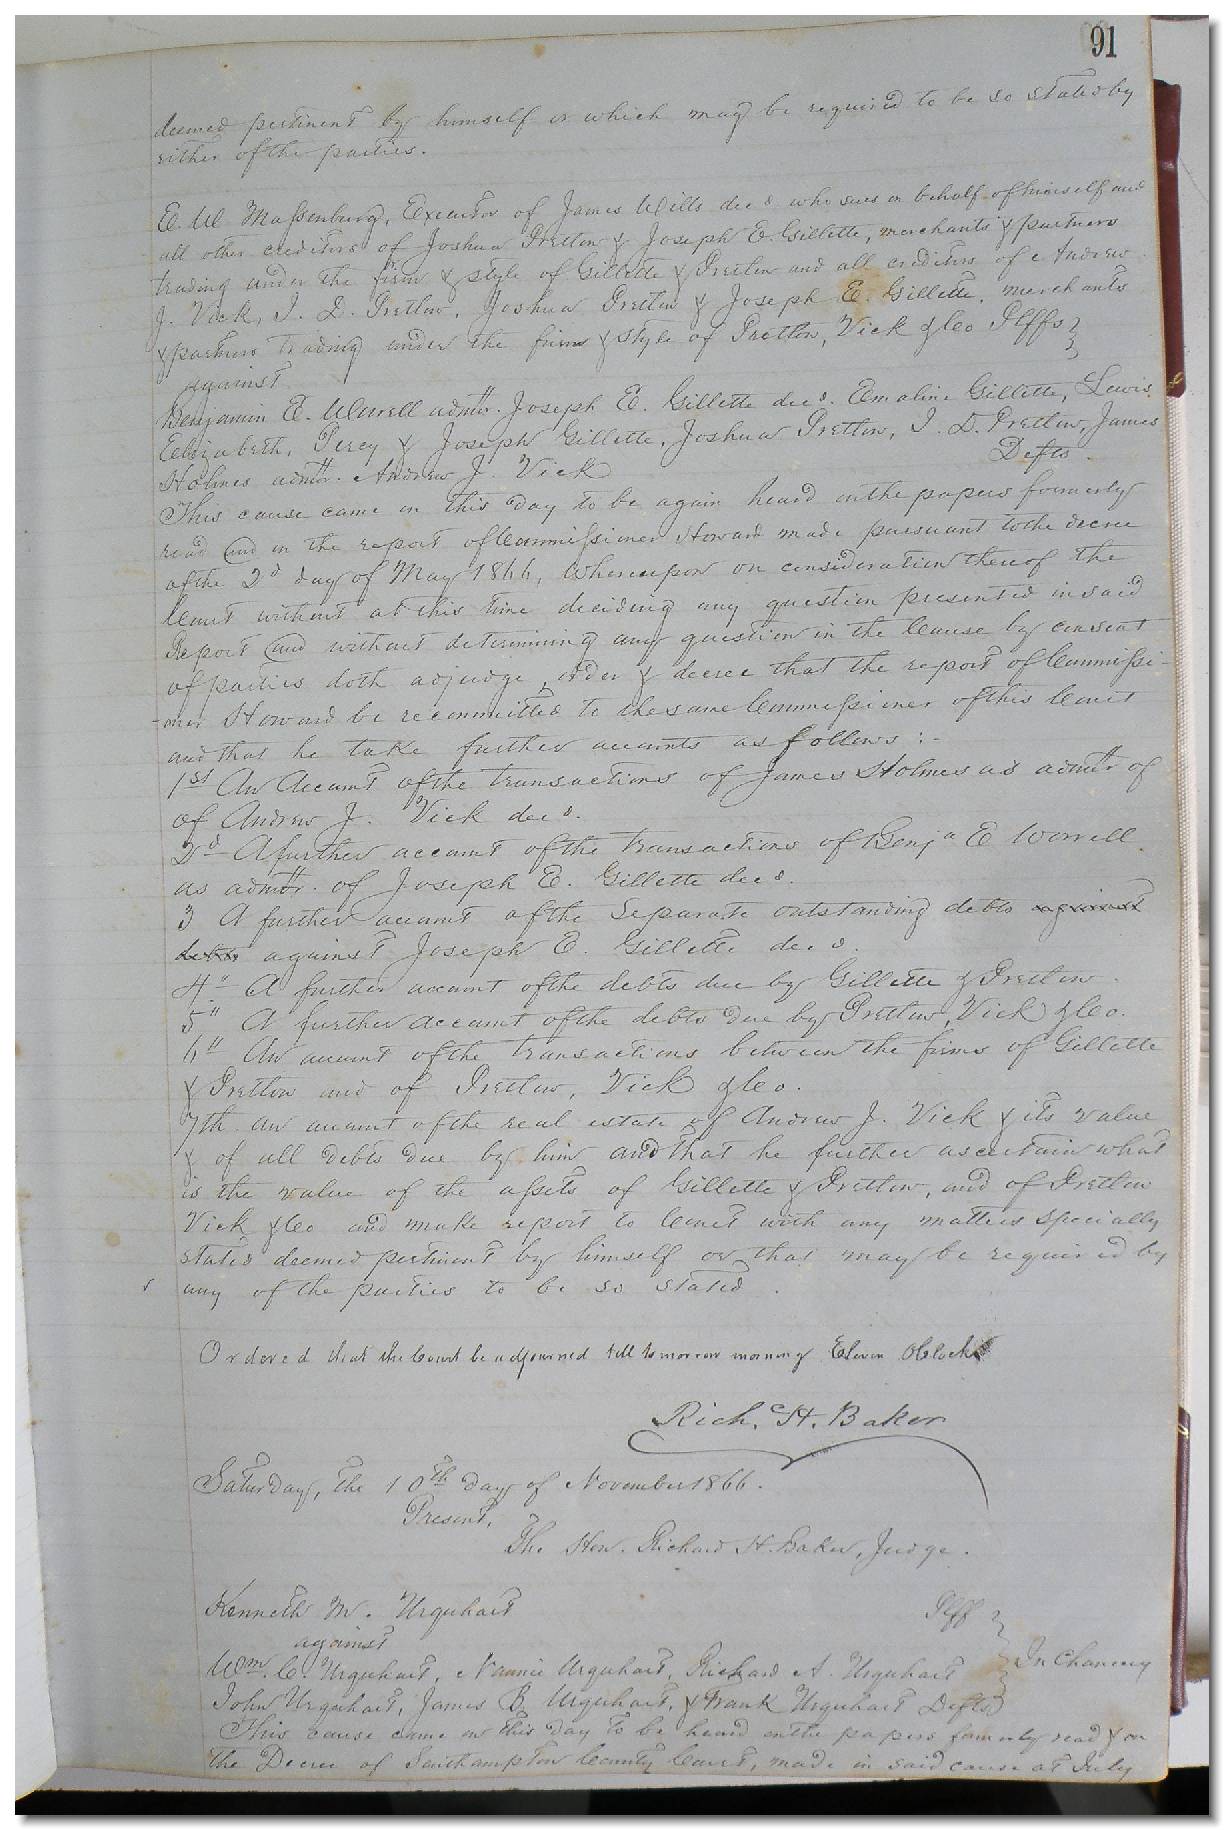 91
deemed pertinent by himself or which may be required to be so stated by
either of the parties.
E. W Massenburg, Executor of James Wills decd who sues on behalf of himself and
all other creditors of Joshua Pretlow & Joseph E. Gillette, merchants & partners
trading under the firm & style of Gillette & Pretlow and all creditors of Andrew
J. Vick, T. D. Pretlow, Joshua Pretlow & Joseph E. Gillette, merchants
& partners trading under the firm & style of Pretlow, Vick & Co Plffs
against
Benjamin E. Worrell admtr. Joseph E. Gillette decd. Emaline Gillette, Lewis
Elizabeth, Percy & Joseph Gillette, Joshua Pretlow, T. D. Pretlow, James
Holmes admtr. Andrew J. Vick Defts.
This cause came on this day to be again heard on the papers formerly
read and on the report of Commissioner Howard made pursuant to the decree
of the 2d day of May 1866, Whereupon on consideration thereof the
Court without at this time deciding any question presented in said
Report and without determining any question in the Cause by consent
of parties doth adjudge, order & decree that the report of Commissi-
-oner Howard be recommitted to the same Commissioner of this Court
and that he take further accounts as follows :-
1st An Account of the transactions of James Holmes as admtr of
of Andrew J. Vick decd.
2d A further account of the transactions of Benja E Worrell
as admtr. of Joseph E. Gillette decd.
3 A further account of the Separate outstanding debts against
debts against Joseph E. Gillette decd.
4" A further account of the debts due by Gillette & Pretlow.
5" A further account of the debts due by Pretlow, Vick & Co.
6" An account of the transactions between the firms of Gillette
& Pretlow and of Pretlow, Vick & Co.
7th an account of the real estate of Andrew J. Vick & its value
& of all debts due by him and that he further ascertain what
is the value of the assets of Gillette & Pretlow, and of Pretlow
Vick & Co and make report to Court with any matters specially
stated deemed pertinent by himself or that may be required by
any of the parties to be so stated.
Ordered that the Court be adjourned till tomorrow morning Eleven OClock
Rich. H. Baker
Saturday, the 10th day of November 1866.
Present,
The Hon. Richard H. Baker, Judge.
Kenneth M. Urquhart Plff
against
Wm. C. Urquhart, Nannie Urquhart, Richard A. Urquhart In Chancery
John Urquhart, James B. Urquhart, & Frank Urquhart Defts
This cause came on this day to be heard on the papers formerly read & on
the Decree of Southampton County Court, made in said cause at July